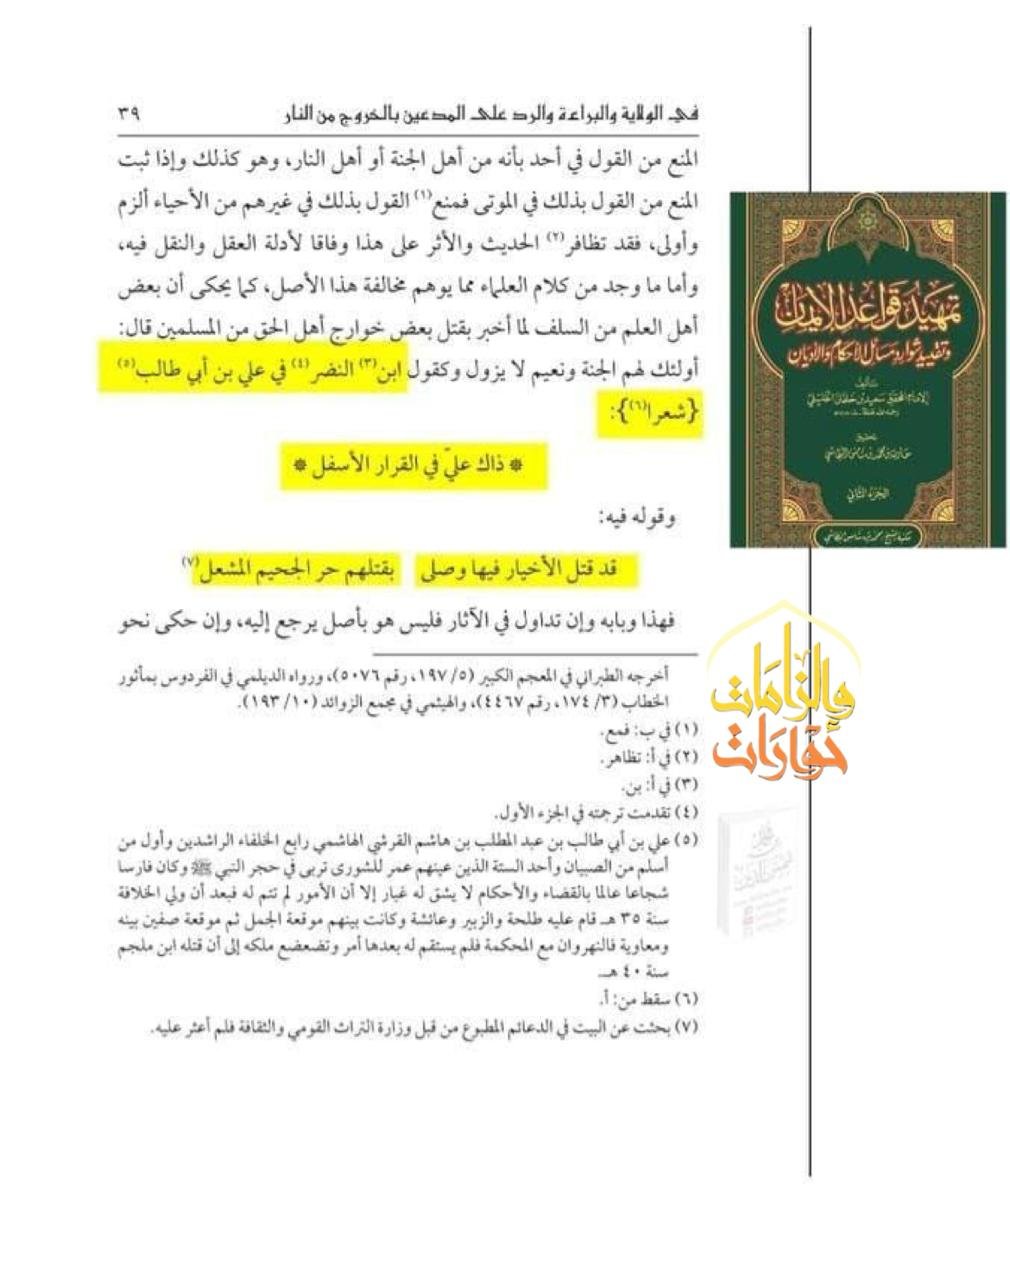 في الولاية والبراءة والرد على المدعين بالخروج من النار ٣٩
المنع من القول في أحد بأنه من أهل الجنة أو أهل النار، وهو كذلك وإذا ثبت
المنع من القول بذلك في الموتى فمنع(١) القول بذلك في غيرهم من الأحياء ألزم
وأولى، فقد تظافر(٢) الحديث والأثر على هذا وفاقا لأدلة العقل والنقل فيه،
وأما ما وجد من كلام العلماء مما يوهم مخالفة هذا الأصل، كما يحكى أن بعض
أهل العلم من السلف لما أخبر بقتل بعض خوارج أهل الحق من المسلمين قال:
أولئك لهم الجنة ونعيم لا يزول وكقول ابن(٣) النضر(٤) في علي بن أبي طالب(٥)
{شعرا(٦)}:
* ذاك عليّ في القرار الأسفل *
وقوله فيه:
قد قتل الأخيار فيها وصلى بقتلهم حر الجحيم المشعل(٧)
فهذا وبابه وإن تداول في الآثار فليس هو بأصل يرجع إليه، وإن حكى نحو
أخرجه الطبراني في المعجم الكبير (٥/ ١٩٧، رقم ٥٠٧٦)، ورواه الديلمي في الفردوس بمأثور
الخطاب (٣/ ١٧٤، رقم ٤٤٦٧)، والهيثمي في مجمع الزوائد (١٠/ ١٩٣).
(١) في ب: فمع.
(٢) في أ: تظاهر.
(٣) في أ: بن.
(٤) تقدمت ترجمته في الجزء الأول.
(٥) علي بن أبي طالب بن عبد المطلب بن هاشم القرشي الهاشمي رابع الخلفاء الراشدين وأول من
أسلم من الصبيان وأحد الستة الذين عينهم عمر للشورى تربى في حجر النبي ﷺ وكان فارسا
شجاعا عالما بالقضاء والأحكام لا يشق له غبار إلا أن الأمور لم تتم له فبعد أن ولي الخلافة
سنة ٣٥ هـ قام عليه طلحة والزبير وعائشة وكانت بينهم موقعة الجمل ثم موقعة صفين بينه
ومعاوية فالنهروان مع المحكمة فلم يستقم له بعدها أمر وتضعضع ملكه إلى أن قتله ابن ملجم
سنة ٤٠ هـ.
(٦) سقط من: أ.
(٧) بحثت عن البيت في الدعائم المطبوع من قبل وزارة التراث القومي والثقافة فلم أعثر عليه.
تمهيد قواعد الإيمان
وتقييد شوارد مسائل الأحكام والأديان
تأليف
الإمام المحقق سعيد بن خلفان الخليلي
تحقيق
الجزء الثاني
والزامات
حوارات